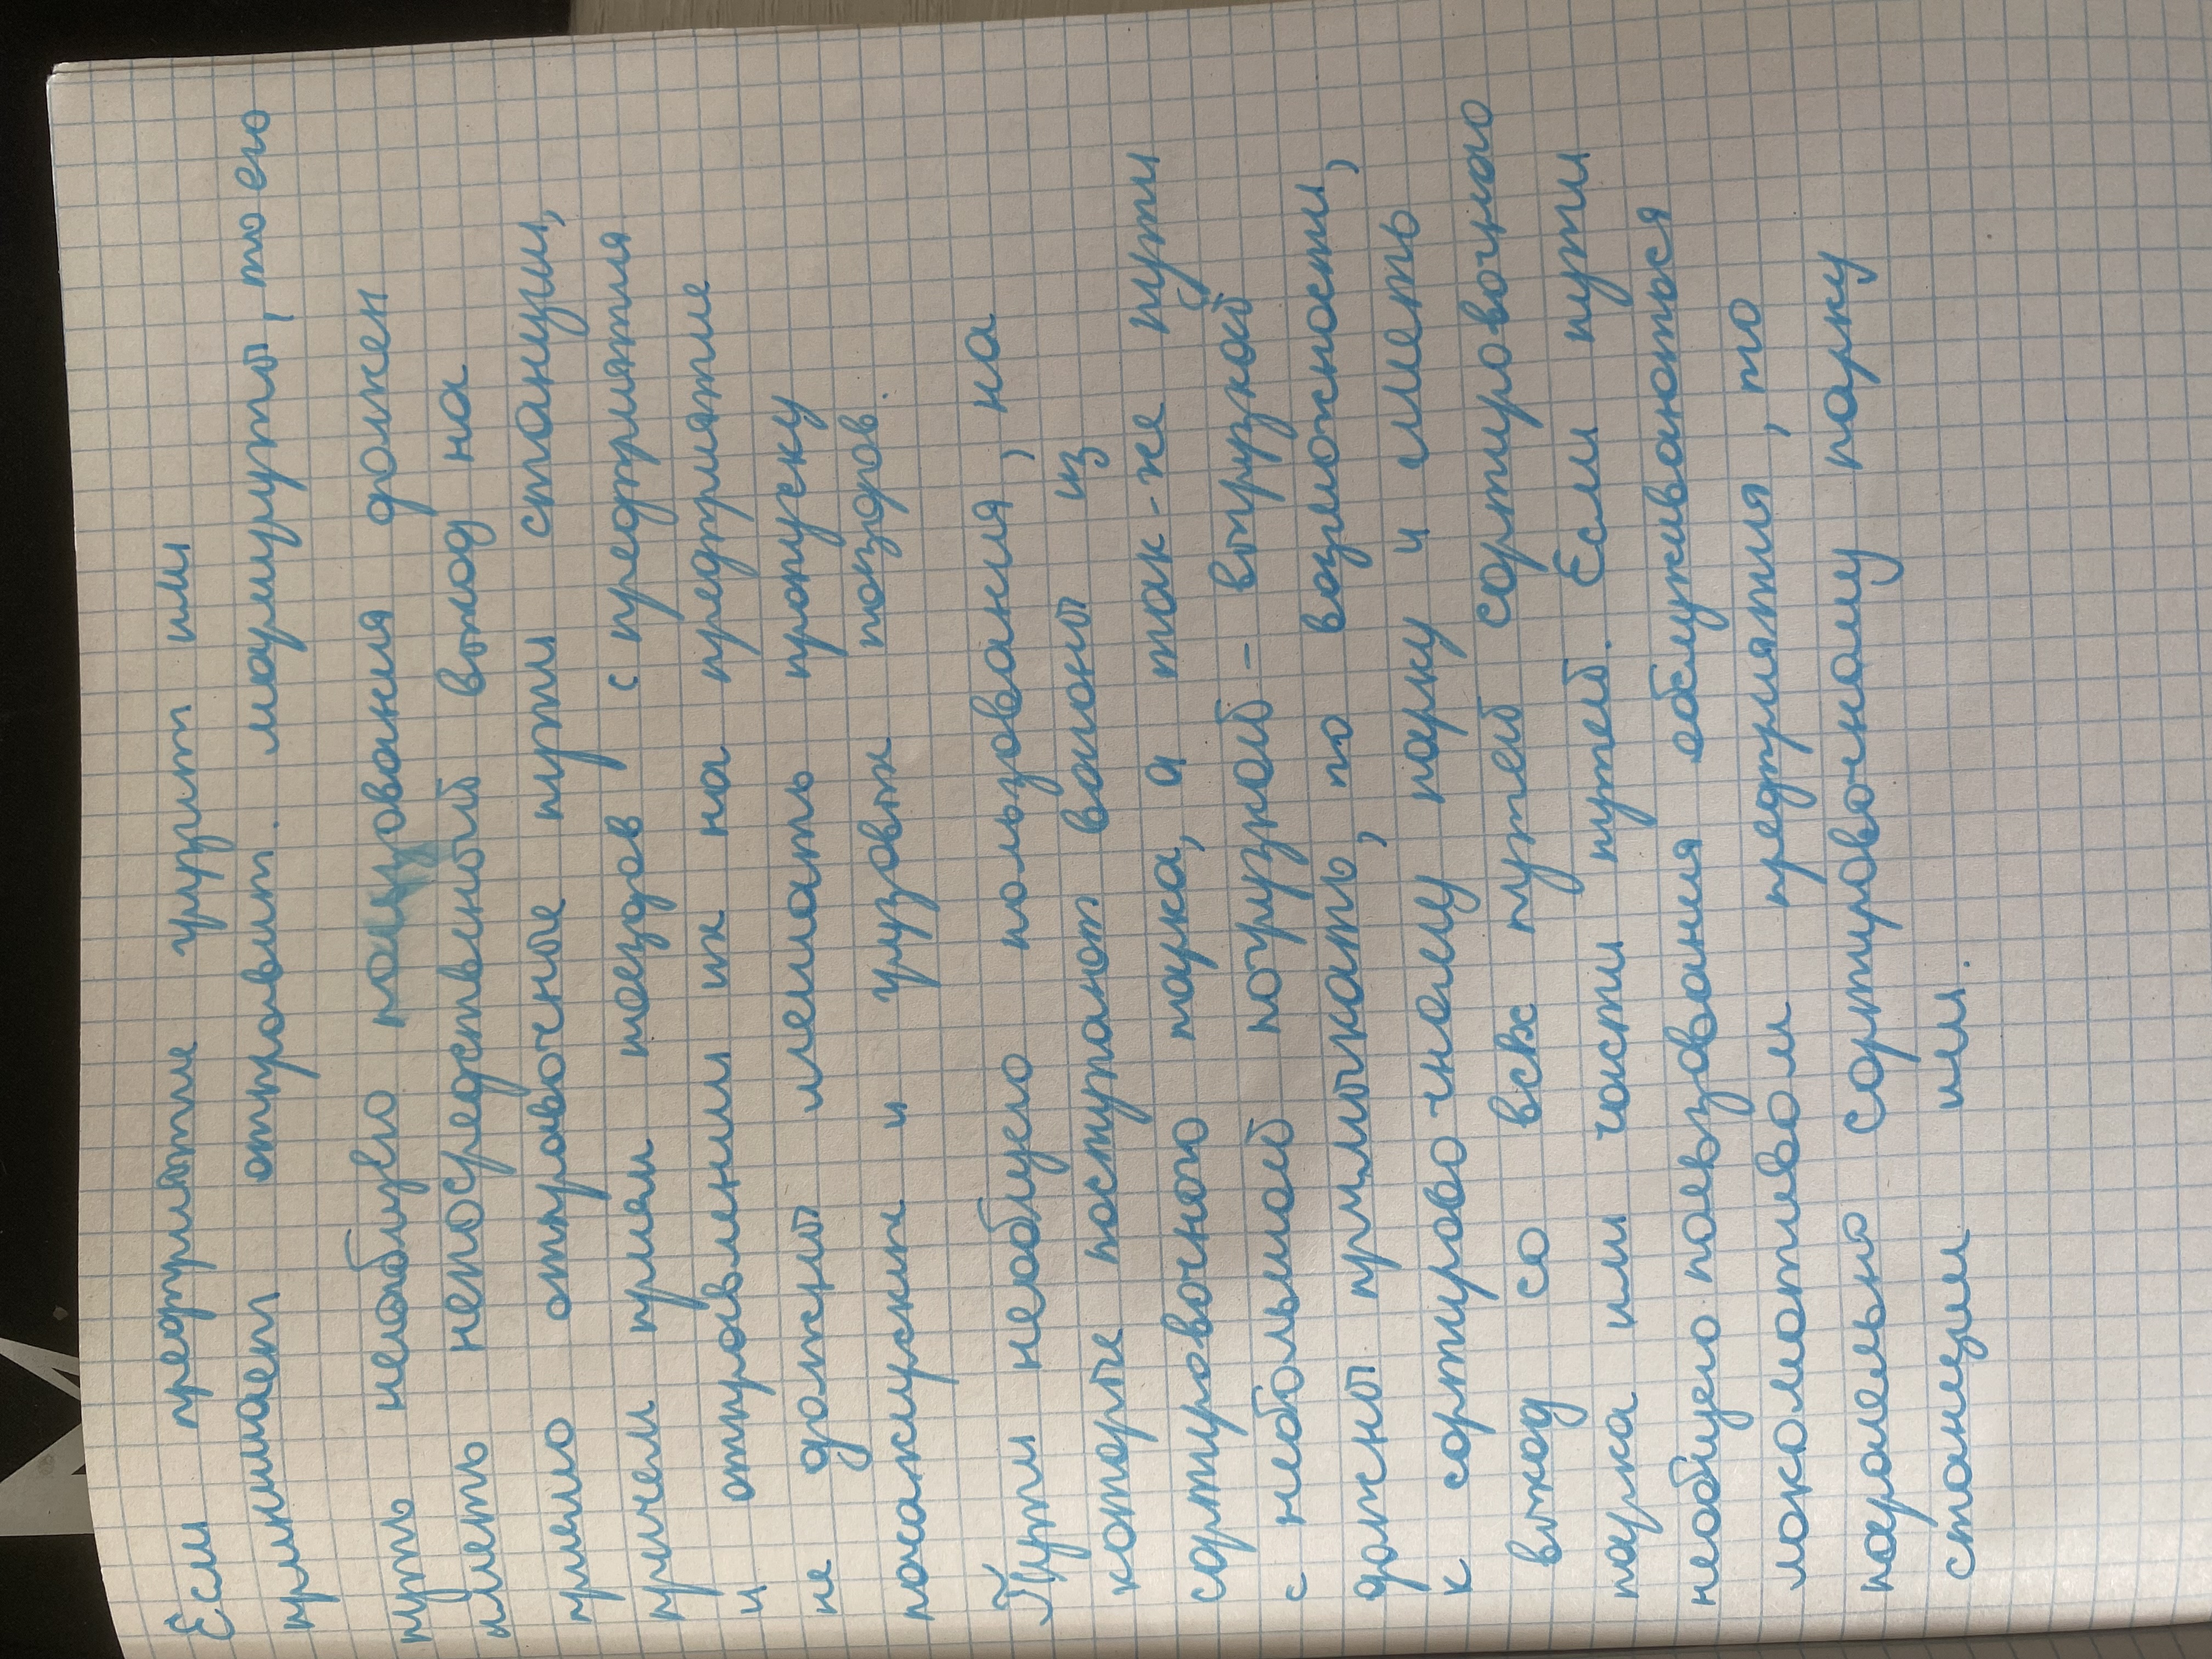 Если предприятие грузит или
принимает отправит. маршруты, то его
путь необщего пользования должен
иметь непосредственный выход на
приемо отправочные пути станции,
причем прием поездов с предприятия
и отправлении их на предприятие
не должны мешать пропуску
пассажирских и грузовых поездов.
Пути необщего пользования, на
которые поступают вагоны из
сортировочного парка, а так-же пути
с небольшой погрузкой - выгрузкой
должны примыкать, по возможности,
к сортировочному парку и иметь
выход со всех путей сортировочного
парка или части путей. Если пути
необщего пользования обслуживаються
локомотивом предприятия, то
паралельно сортировочному парку
станции или.